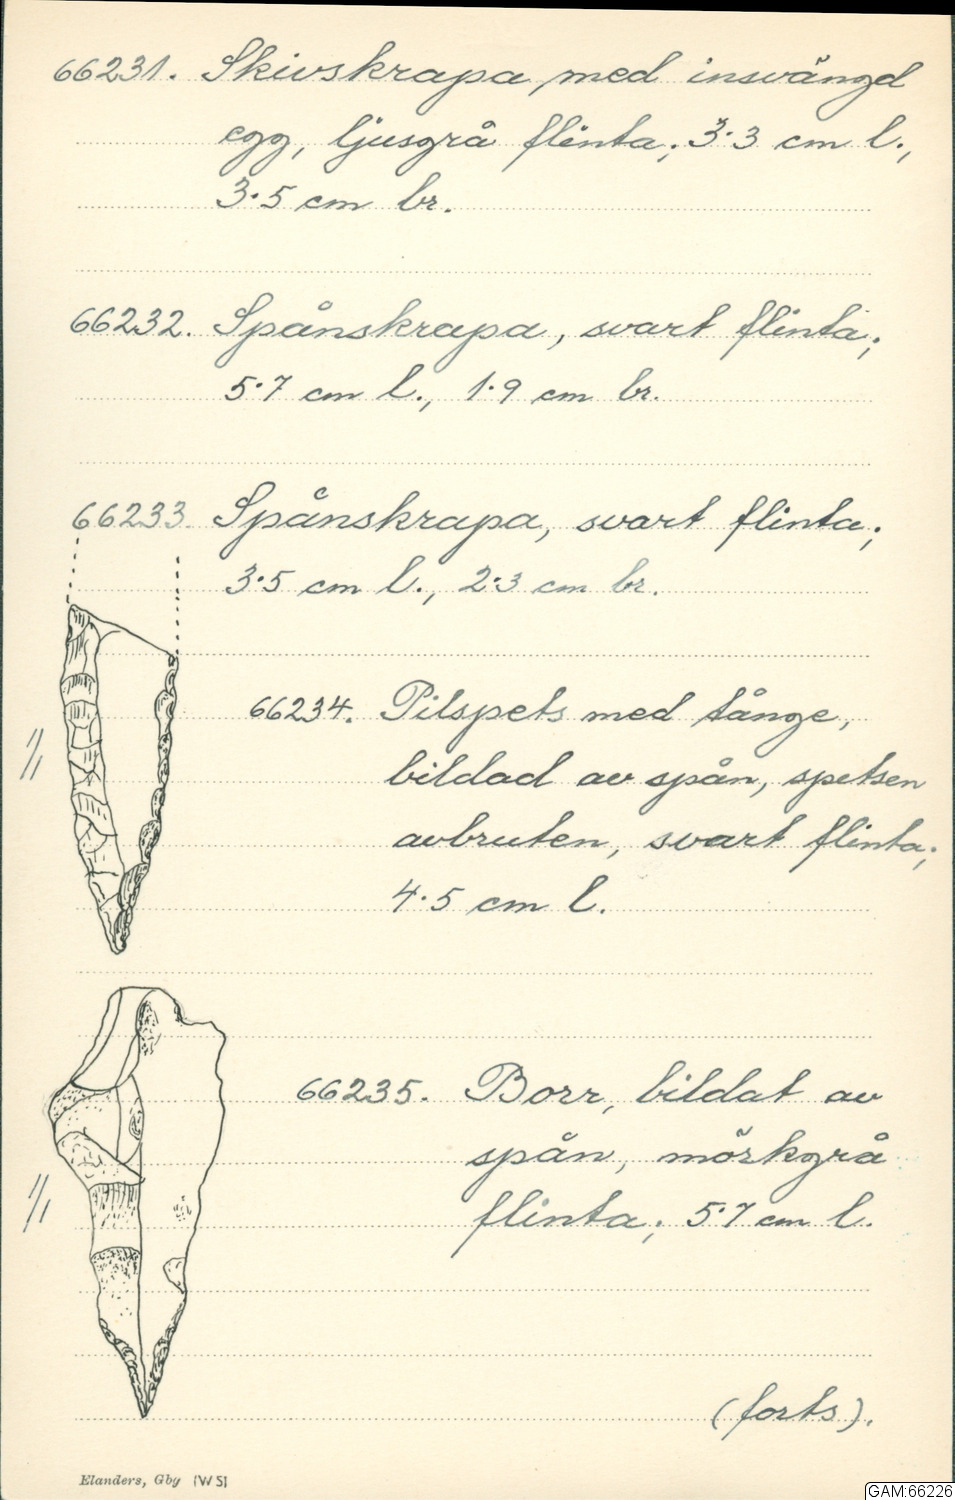 66231. Skivskrapa med insvängd
egg, ljusgrå flinta; 3.3 cm l.,
3.5 cm br.
66232. Spånskrapa, svart flinta;
5.7 cm l., 1.9 cm br.
66233. Spånskrapa, svart flinta;
3.5 cm l., 2.3 cm br.
66234. Pilspets med tånge,
bildad av spån, spetsen
avbruten, svart flinta;
4.5 cm l.
1/1
66235. Borr, bildat av
spån, mörkgrå
flinta; 5.7 cm l.
1/1
(forts).
Elanders, Gby (WS)
GAM:66226